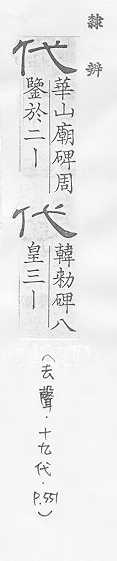 隸辨
代
華山廟碑周
鑒於二丨
代
韓勑碑八
皇三丨
(去聲·十九代·P.551)